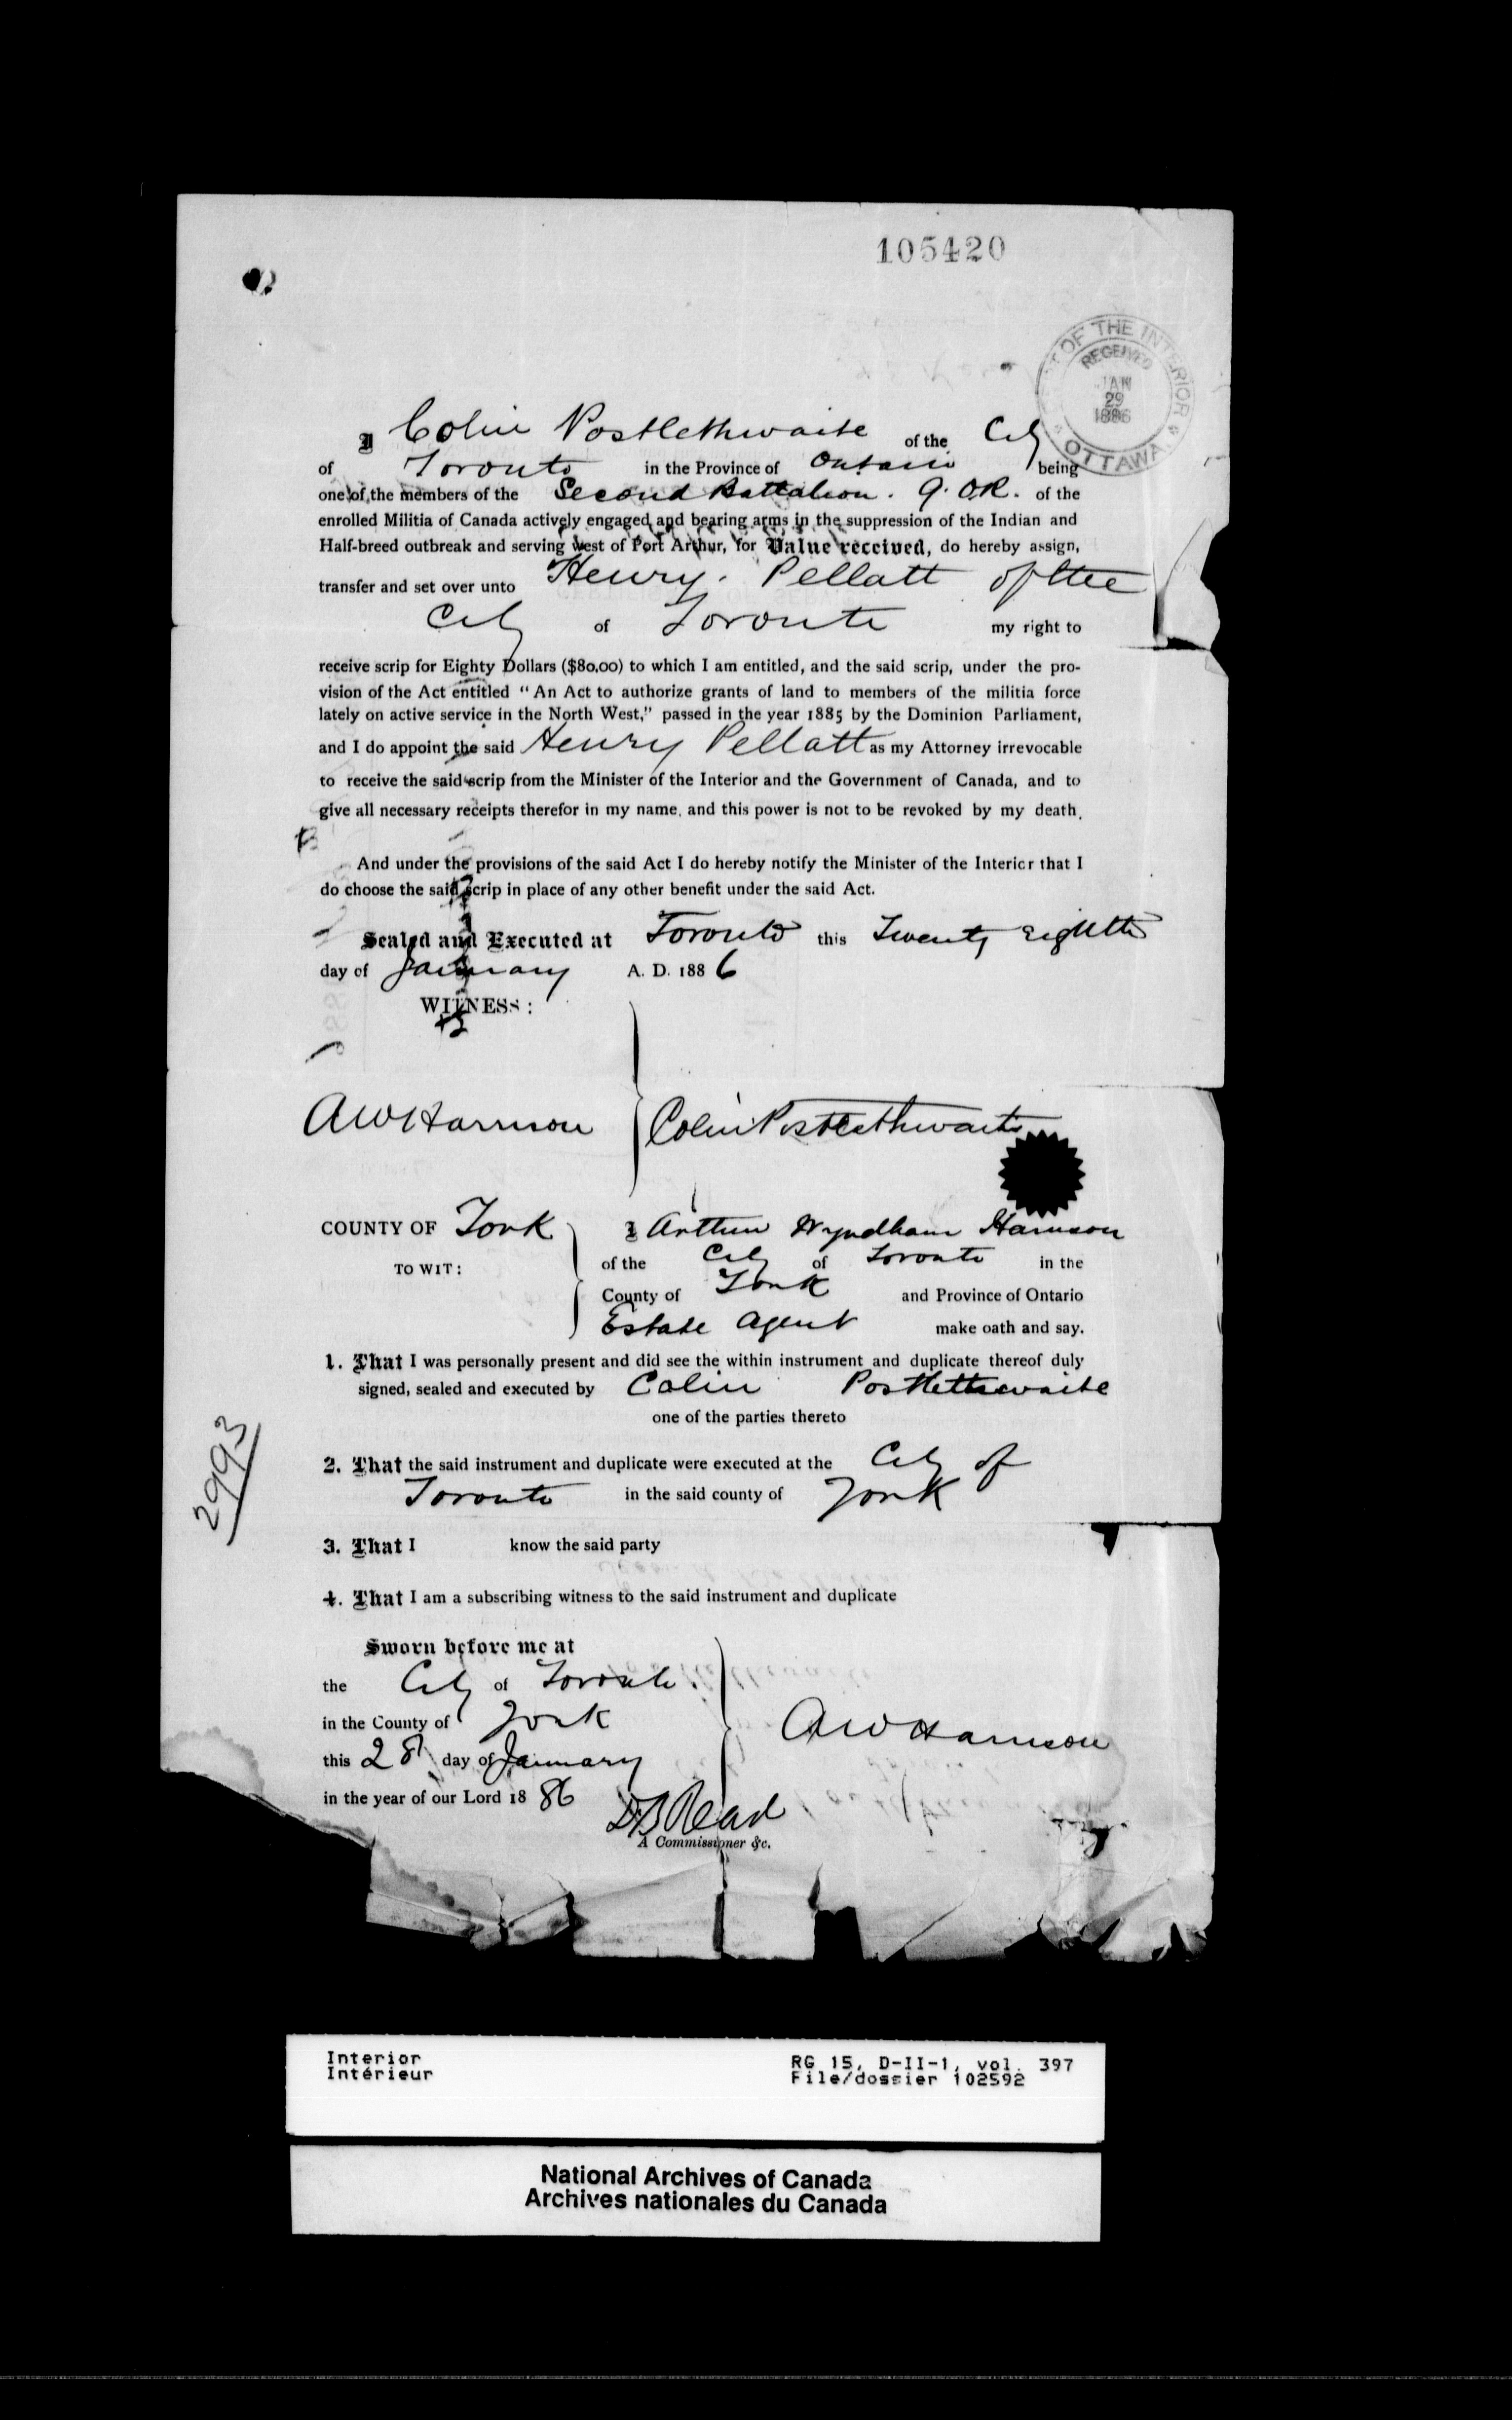 105420
OF THE INTERIOR
RECEIVED
JAN
29
1886
OTTAWA
I Colin Postlethwaite of the City
of Toronto in the Province of Ontario being
one of the members of the Second Battalion. Q. O.R. of the
enrolled Militia of Canada actively engaged and bearing arms in the suppression of the Indian and
Half-breed outbreak and serving west of Port Arthur, for Value received, do hereby assign,
transfer and set over unto Henry. Pellatt of the
City of Toronto my right to
receive scrip for Eighty Dollars ($80.00) to which I am entitled, and the said scrip, under the pro-
vision of the Act entitled "An Act to authorize grants of land to members of the militia force
lately on active service in the North West," passed in the year 1885 by the Dominion Parliament,
and I do appoint the said Henry Pellatt as my Attorney irrevocable
to receive the said scrip from the Minister of the Interior and the Government of Canada, and to
give all necessary receipts therefor in my name, and this power is not to be revoked by my death.
And under the provisions of the said Act I do hereby notify the Minister of the Interior that I
do choose the said scrip in place of any other benefit under the said Act.
Sealed and Executed at Toronto this Twenty Eighth
day of January A. D. 1886
WITNESS:
AW Harrison Colin Postlethwaite
COUNTY OF York I Arthur Wyndham Harrison
TO WIT: of the City of Toronto in the
County of York and Province of Ontario
Estate Agent make oath and say.
1. That I was personally present and did see the within instrument and duplicate thereof duly
signed, sealed and executed by Colin Postlethwaite
one of the parties thereto
2. That the said instrument and duplicate were executed at the City of
Toronto in the said county of York
2993
3. That I know the said party
4. That I am a subscribing witness to the said instrument and duplicate
Sworn before me at
the City of Toronto
in the County of York
this 28 day of January
in the year of our Lord 1886
AW Harrison
DB Read
A Commissioner &c.
Interior
Intérieur
RG 15, D-II-1, vol. 397
File/dossier 102592
National Archives of Canada
Archives nationales du Canada